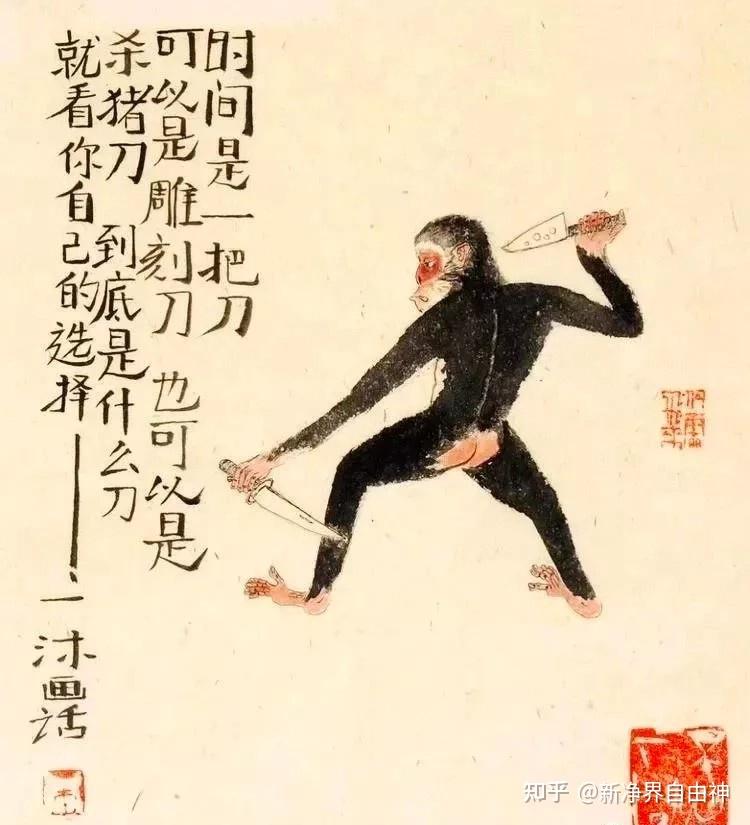 时间是一把刀
可以是雕刻刀 也可以是
杀猪刀 到底是什么刀
就看你自己的选择——
二沐画话
知乎 @新净界自由神